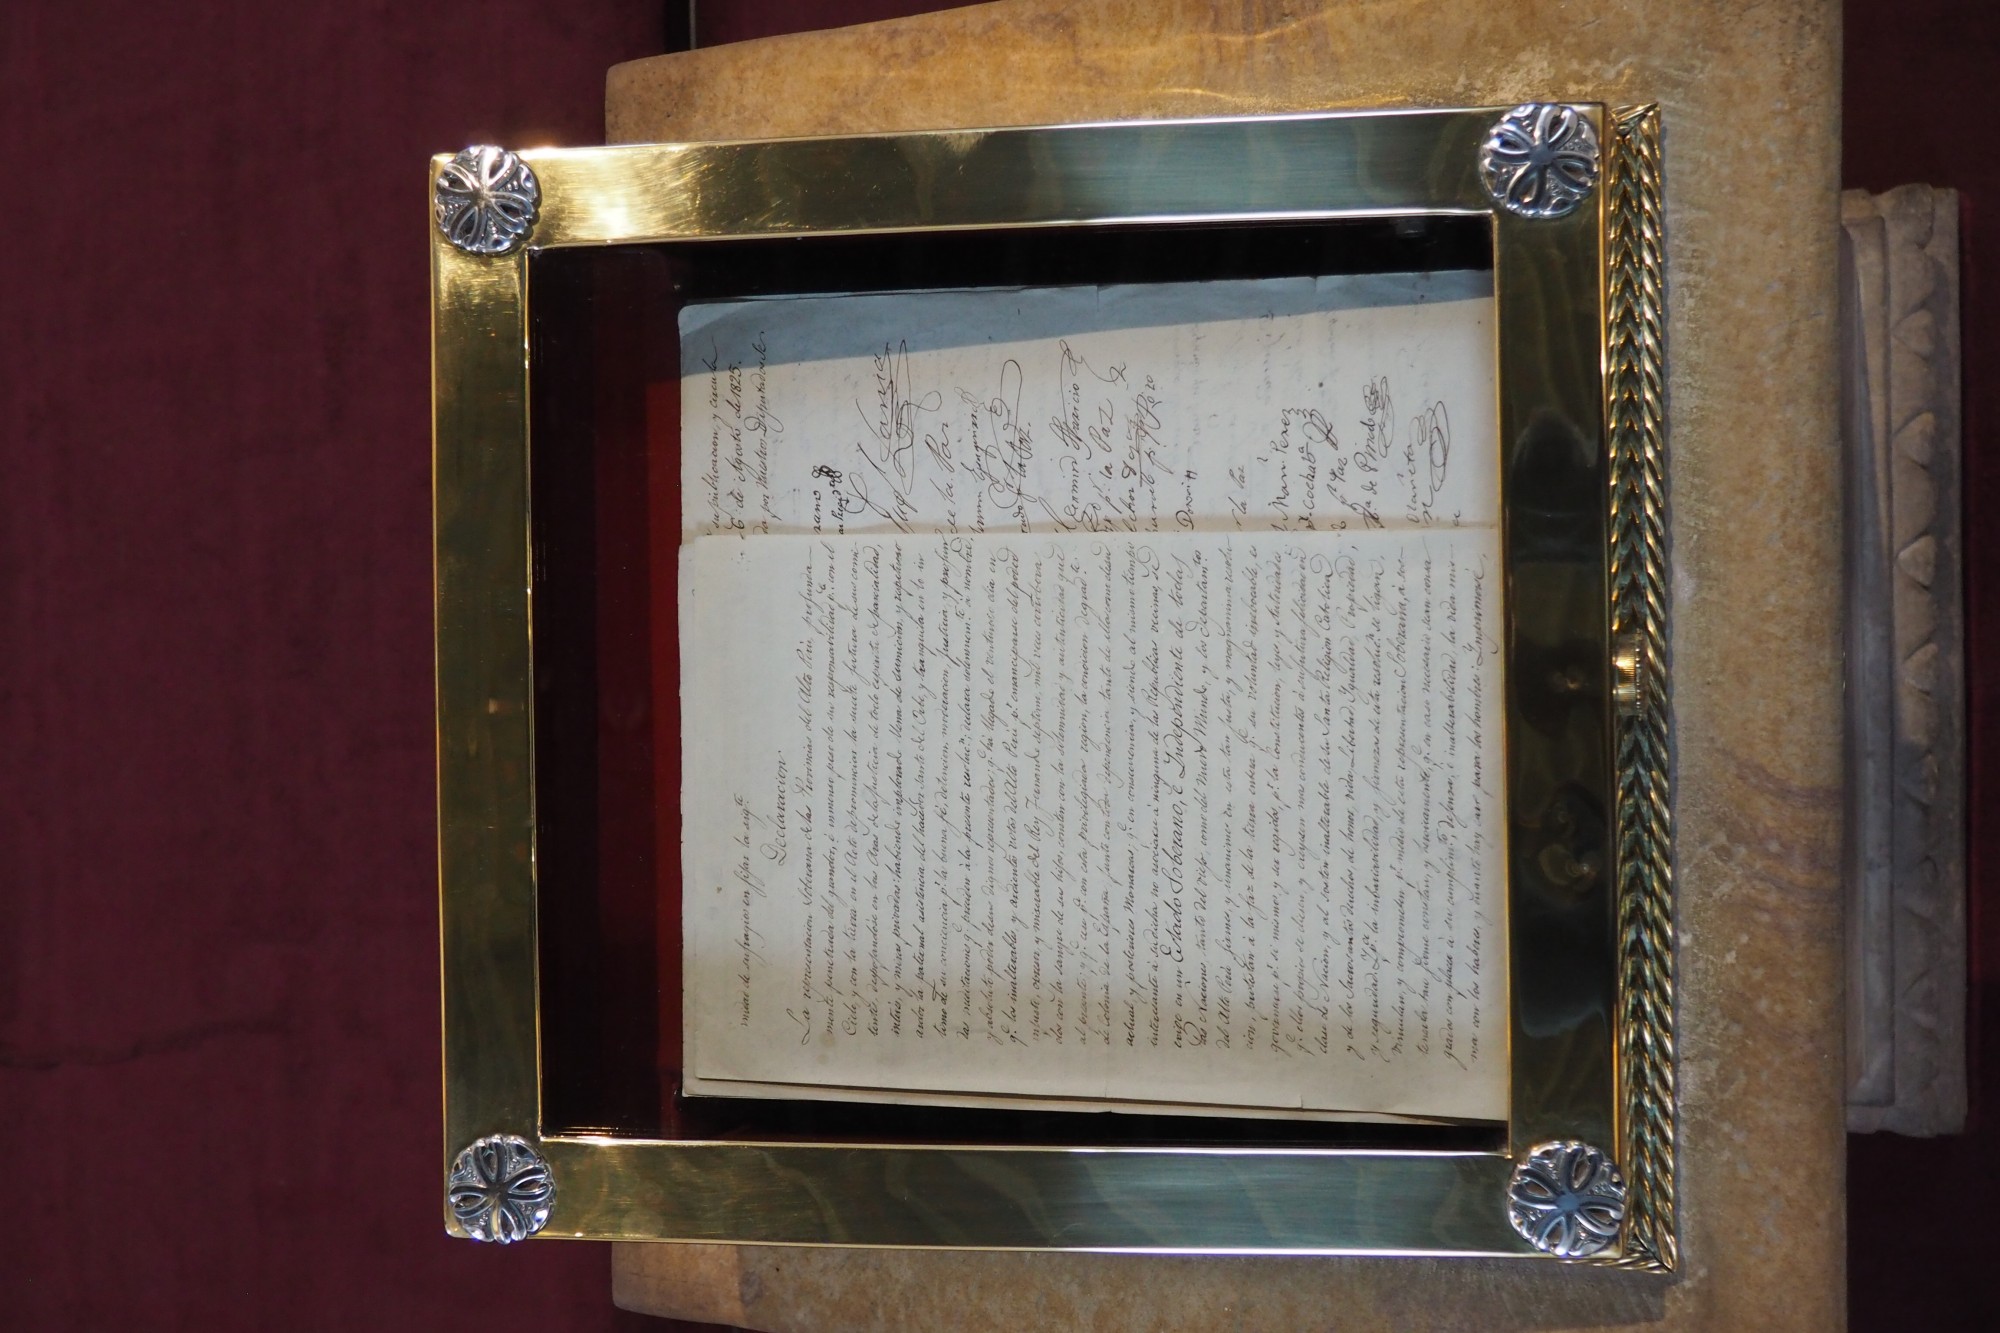 midad de sufragios en fijar la sigte.
Declaracion.
La representacion Soberana de las Provincias del Alto Perú, profunda-
mente penetrada del grandor, é inmenso peso de su responsabilidad pa. con el
Cielo, y con la tierra en el Acto de pronunciar la suerte futura de sus comi-
tentes, despojandose en las Aras de la justicia de todo espiritu de parcialidad,
interes, y miras privadas: habiendo implorado llena de sumicion, y respetuoso
ardor la paternal asistencia del hacedor Santo del Orbe, y tranquila en lo in
timo de su conciencia pr. la buena fé, detencion, moderacion, justicia, y profun
das meditaciones, qe. preciden á la presente resolucn.; declara solemnemte. á nombre,
y absoluto poder de sus dignos representados; qe. há llegado el venturoso dia en
qe. los inalterables, y ardientes votos del Alto Perú pr. emanciparse del poder
injusto, opresor, y miserable del Rey Fernando septimo, mil veces corrobora
dos con la sangre de sus hijos, consten con la solemnidad y autenticidad que
al presente, y qe. cese pa. con esta privilegiada region, la condicion degradte.
de Colonia de la España, junto con toda dependencia, tanto de ella, como de su
actual, y posteriores Monarcas; qe. en consecuencia, y siendo al mismo tiempo
interesante á su dicha, no asociarse á ninguna de las Republicas vecinas, se
erige en un Estado Soberano, é Independiente de todas
las naciones, tanto del viejo, como del nuevo Mundo; y los departamtos.
del Alto Perú firmes, y unanimes en esta tan justa, y magnanima resolu-
cion, protestan á la faz de la tierra entera qe. su voluntad irrebocable, es
governarse pr. si mismos, y ser regidos, pr. la constitucion, leyes, y Autoridades
qe. ellos propios se diesen, y creyesen mas conducentes á su futura felicidad en
clase de Nacion, y al sosten inalterable de su Santa Religion Catolica
y de los Sacrosantos derechos, de honor, vida, Libertad, Ygualdad, Propiedad,
y seguridad. Y pa. la inbariavilidad, y firmeza de esta resolucn. se ligan,
vinculan, y comprometen pr. medio de esta representacion Soberana, á sos-
tenerla tan firme, constante, y eroicamente, qe. en caso necesario sean consa
grados con placer á su cumplimto. defensa, é inalterabilidad, la vida mis-
ma con los haberes, y quanto hay caro para los hombres. Ynprimase,
su publicacion, y circula
6 de Agosto de 1825.
da por nuestro Diputado de
rano
Lanza
de la Paz
la Paz.
Fermin Aparicio
po. pr. la Paz
pr. Potosi
r. la Paz
Man. Perez
pr. Cochaba.
pr. Paz
a de Pinedo
Olañeta